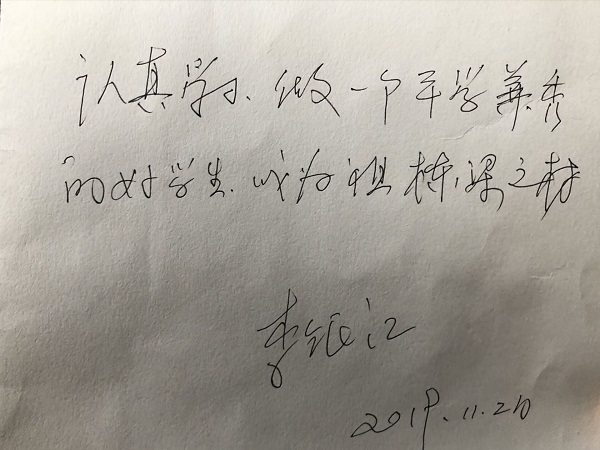 认真学习、做一个平学兼秀
的好学生、成为祖栋梁之材
李银江
2019.11.20